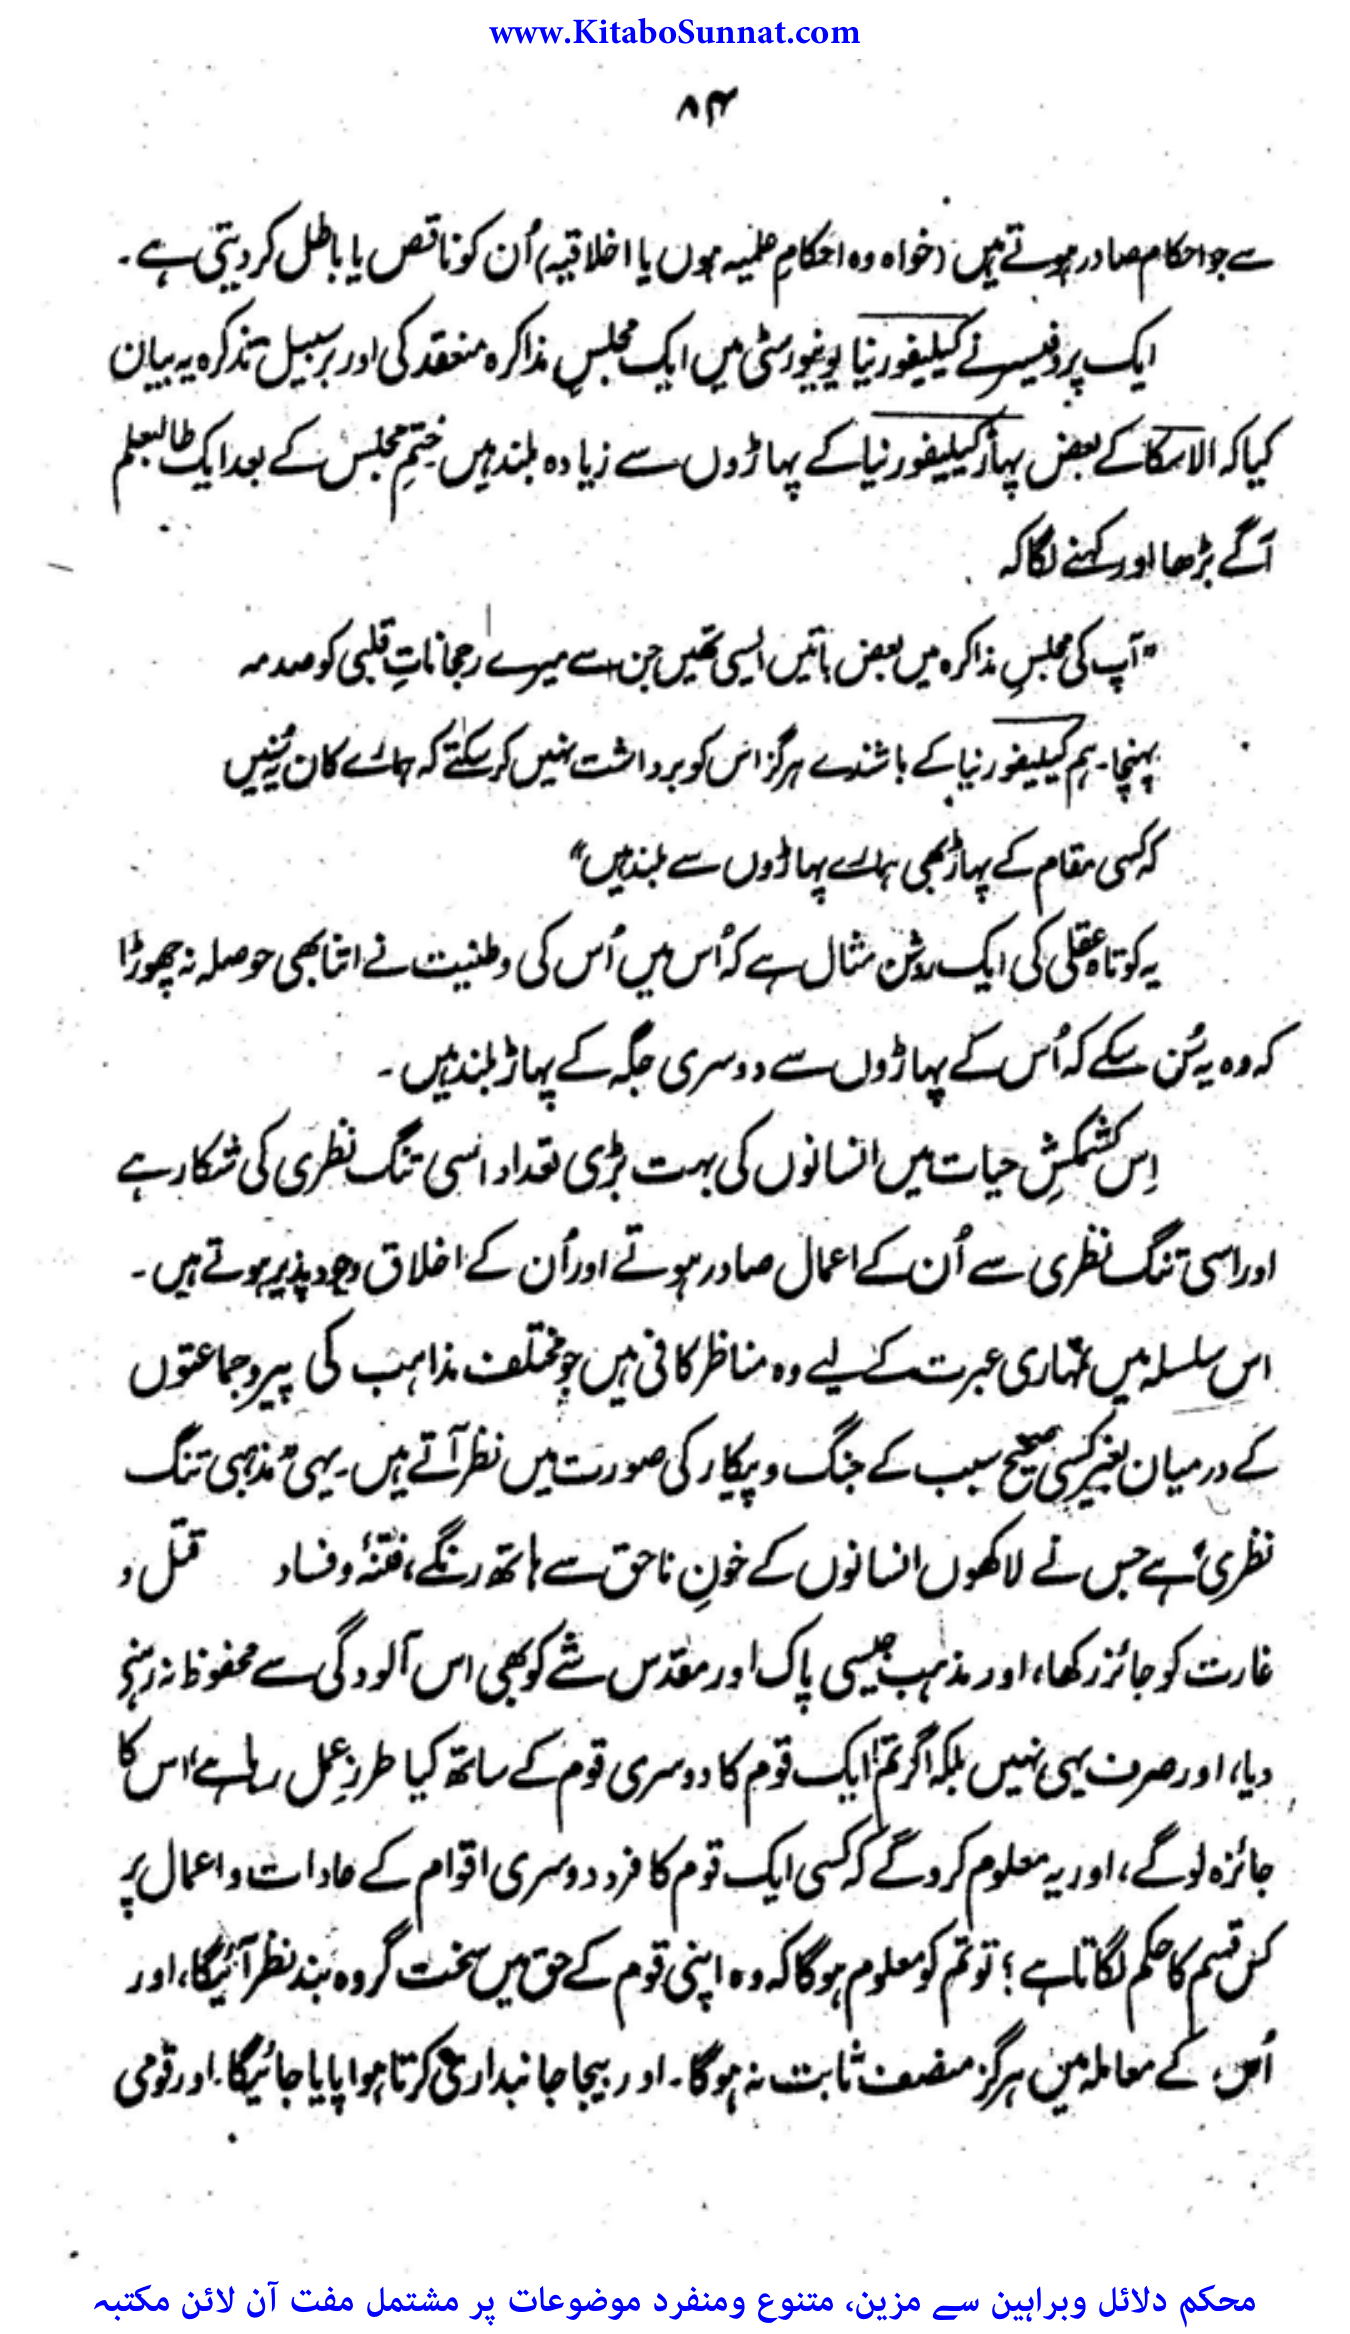 www.KitaboSunnat.com
۸۴
سے جو احکام صادر ہوتے ہیں (خواہ وہ احکامِ علمیہ ہوں یا اخلاقیہ) اُن کو ناقص یا باطل کر دیتی ہے۔
ایک پروفیسر نے کیلیفورنیا یونیورسٹی میں ایک مجلسِ مذاکرہ منعقد کی اور برسبیل تذکرہ یہ بیان
کیا کہ الاسکا کے بعض پہاڑ کیلیفورنیا کے پہاڑوں سے زیادہ بلند ہیں ختمِ مجلس کے بعد ایک طالبعلم
آگے بڑھا اور کہنے لگا کہ
"آپ کی مجلسِ مذاکرہ میں بعض باتیں ایسی تھیں جن سے میرے رجحاناتِ قلبی کو صدمہ
پہنچا۔ ہم کیلیفورنیا کے باشندے ہرگز اس کو برداشت نہیں کر سکتے کہ ہمارے کان یہ سُنیں
کہ کسی مقام کے پہاڑ بھی ہمارے پہاڑوں سے بلند ہیں"
یہ کوتاہ عقلی کی ایک روشن مثال ہے کہ اُس میں اُس کی وطنیت نے اتنا بھی حوصلہ نہ چھوڑا
کہ وہ یہ سُن سکے کہ اُس کے پہاڑوں سے دوسری جگہ کے پہاڑ بلند ہیں۔
اِس کشمکشِ حیات میں انسانوں کی بہت بڑی تعداد اسی تنگ نظری کی شکار ہے
اور اسی تنگ نظری سے اُن کے اعمال صادر ہوتے اور اُن کے اخلاق وجود پذیر ہوتے ہیں۔
اس سلسلہ میں تمہاری عبرت کے لیے وہ مناظر کافی ہیں جو مختلف مذاہب کی پیرو جماعتوں
کے درمیان بغیر کسی صحیح سبب کے جنگ و پیکار کی صورت میں نظر آتے ہیں۔ یہی "مذہبی تنگ
نظری" ہے جس نے لاکھوں انسانوں کے خونِ ناحق سے ہاتھ رنگے، فتنۂ و فساد قتل و
غارت کو جائز رکھا، اور مذہب جیسی پاک اور مقدس شے کو بھی اس آلودگی سے محفوظ نہ رہنے
دیا، اور صرف یہی نہیں بلکہ اگر تم "ایک قوم کا دوسری قوم کے ساتھ کیا طرزِ عمل رہا ہے" اس کا
جائزہ لوگے، اور یہ معلوم کرو گے کہ کسی ایک قوم کا فرد دوسری اقوام کے عادات و اعمال پر
کس قسم کا حکم لگاتا ہے؛ تو تم کو معلوم ہو گا کہ وہ اپنی قوم کے حق میں سخت گروہ بند نظر آئیگا، اور
اُس کے معاملہ میں ہرگز منصف ثابت نہ ہوگا۔ اور بیجا جانبداری کرتا ہوا پایا جائیگا۔ اور قومی
محکم دلائل وبراہین سے مزین، متنوع ومنفرد موضوعات پر مشتمل مفت آن لائن مکتبہ